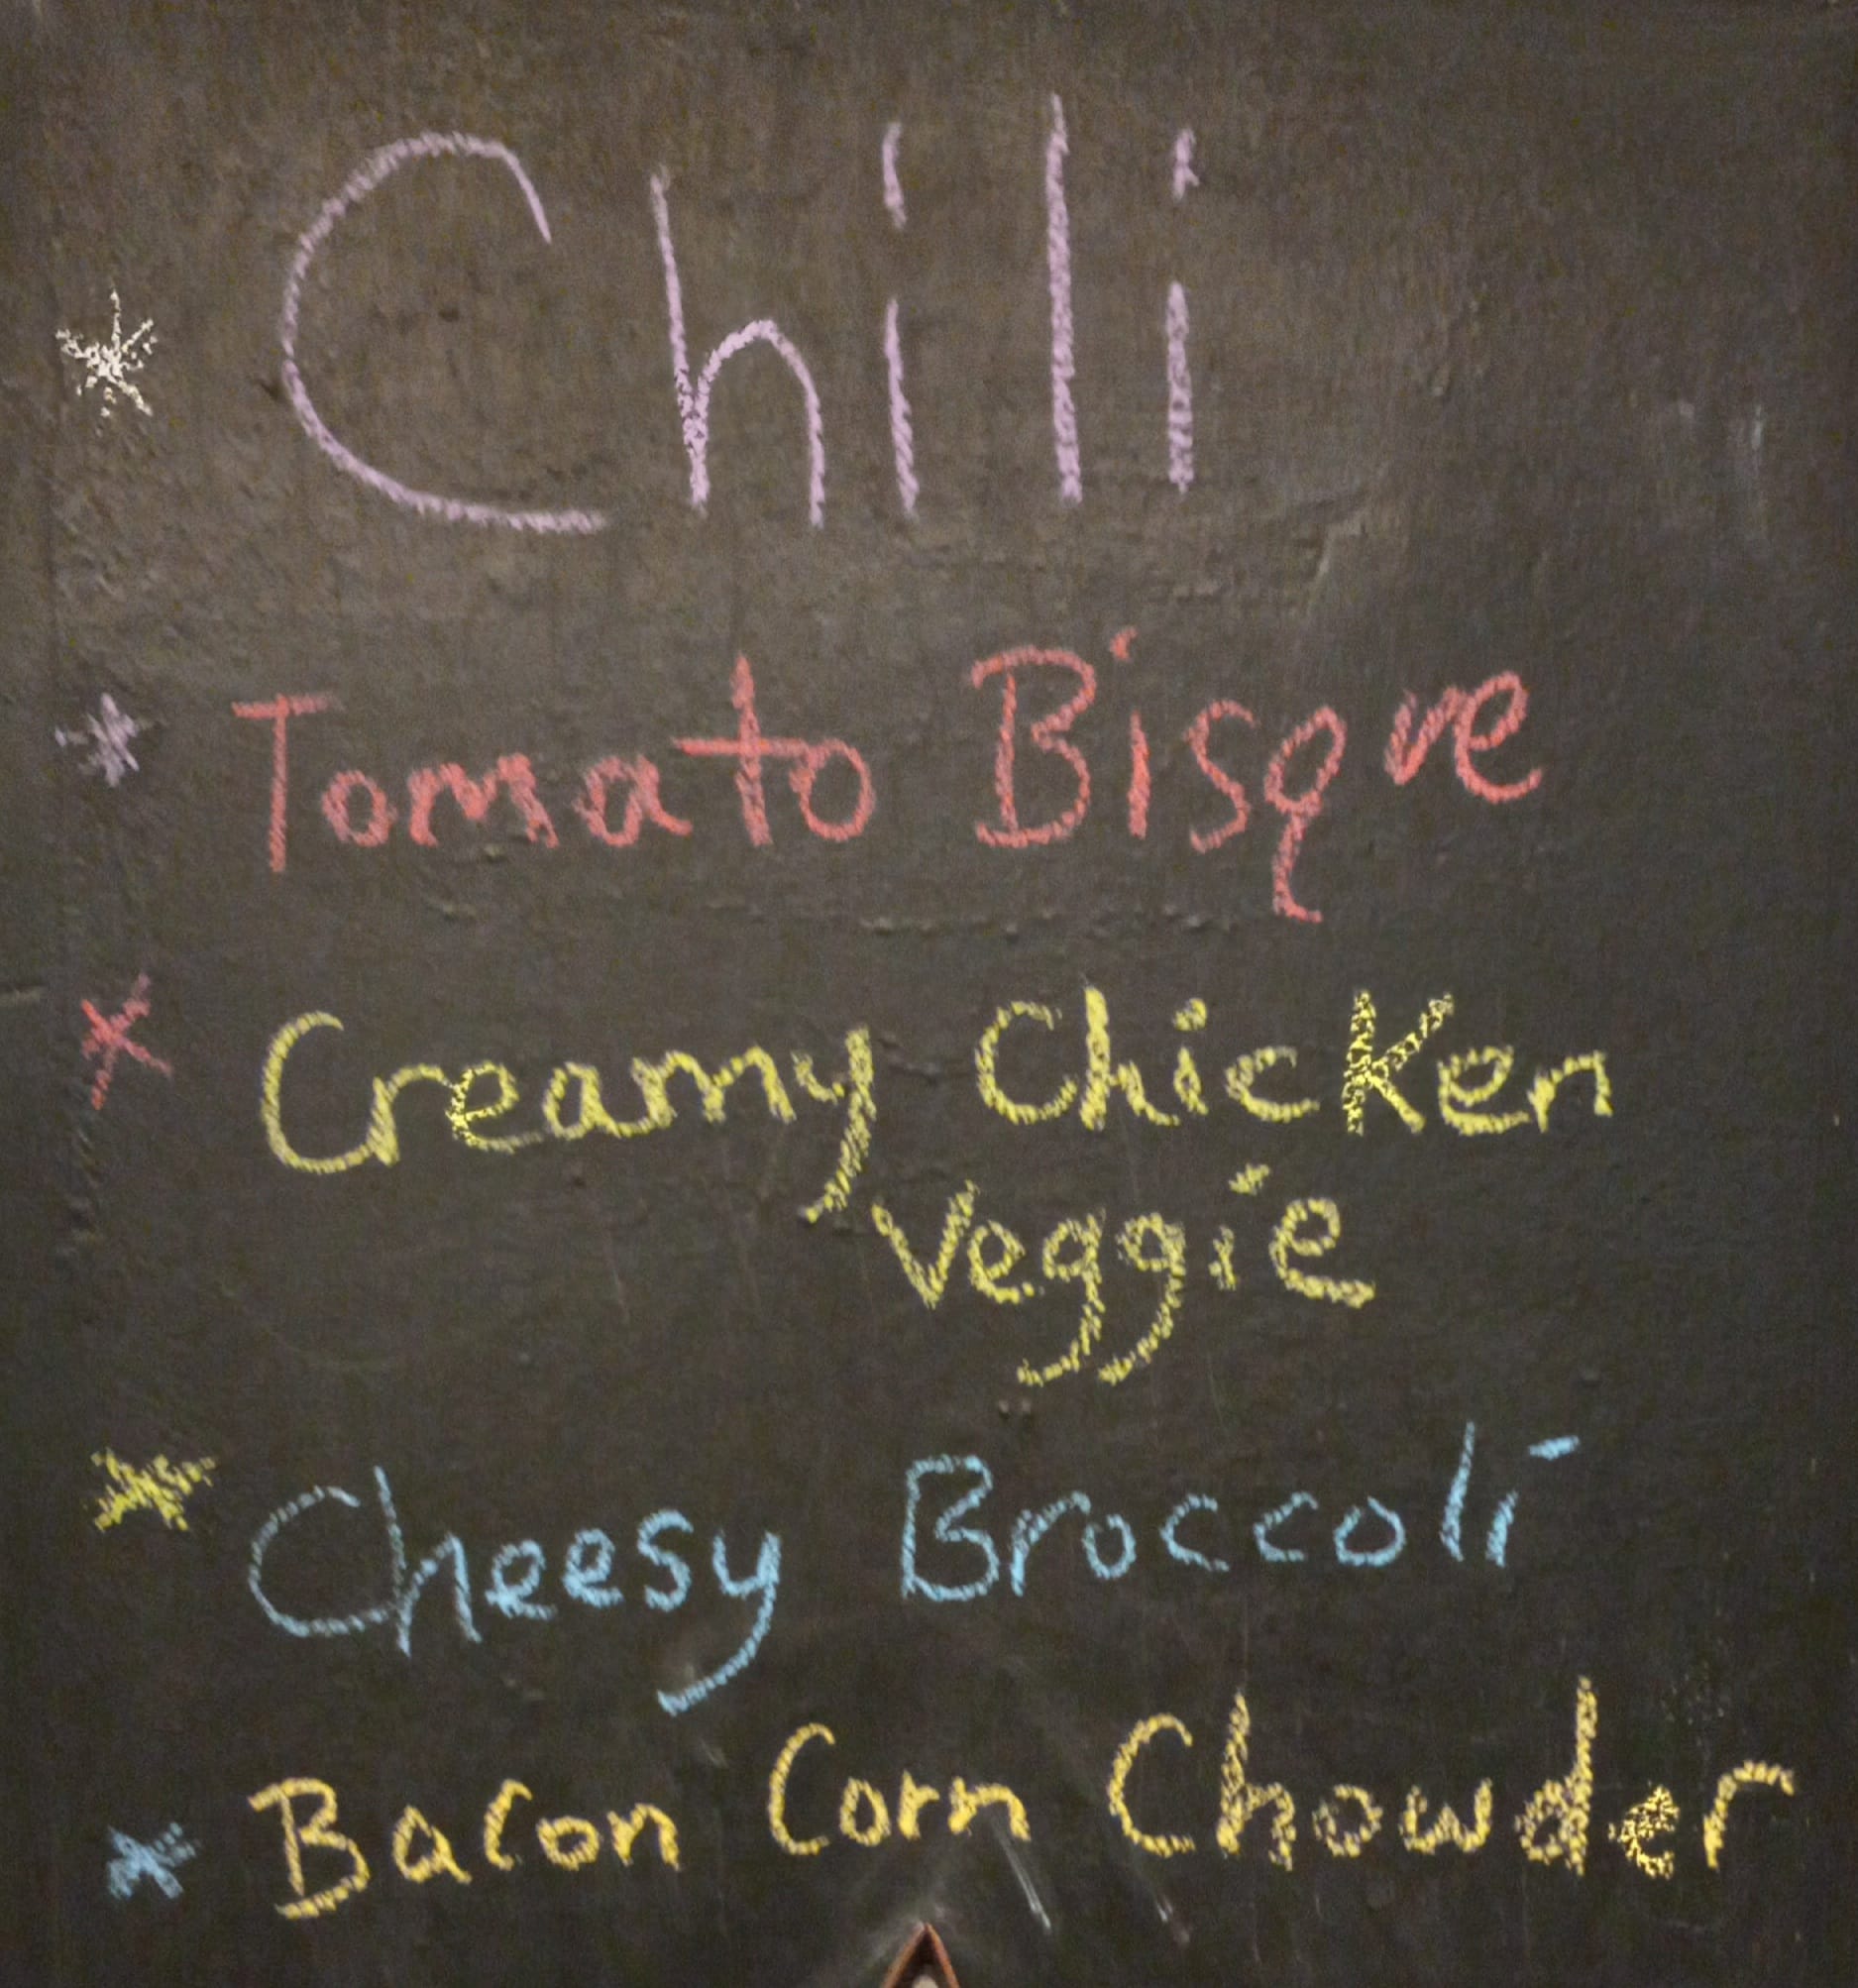 * Chili
* Tomato Bisque
* Creamy Chicken
Veggie
* Cheesy Broccoli
* Bacon Corn Chowder